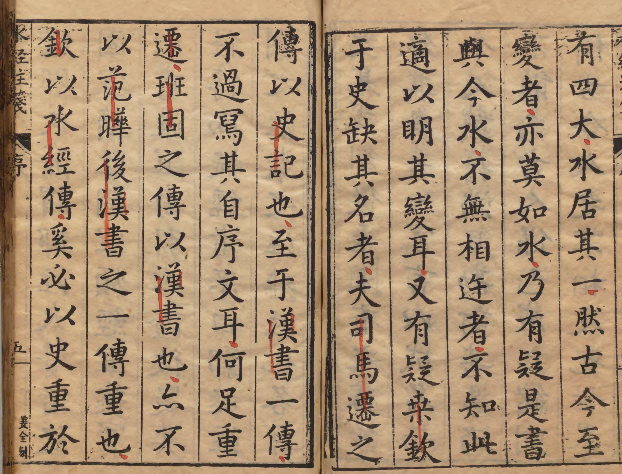 有四大水居其一然古今至
變者亦莫如水乃有疑是書
與今水不無相迕者不知此
適以明其變耳又有疑桒欽
于史缺其名者夫司馬遷之
傳以史記也至于漢書一傳
不過冩其自序文耳何足重
遷班固之傳以漢書也亦不
以范曄後漢書之一傳重也
欽以水經傳奚必以史重於
水經注箋
序
五